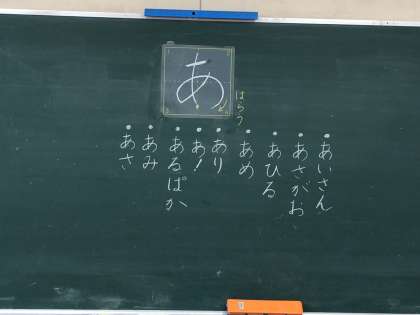 あ
はらう
・あいさん
・あさがお
・あひる
・あめ
・あり
・あ！
・あるぱか
・あみ
・あさ